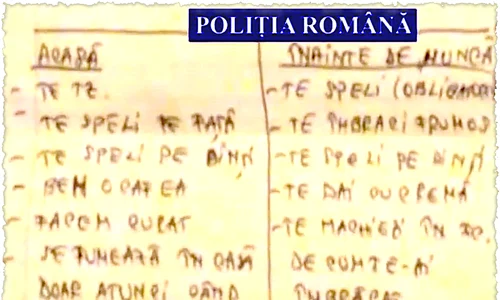 POLIȚIA ROMÂNĂ
ACASĂ
- TE TZ.
- TE SPELI PE FAȚĂ
- TE SPELI PE DINȚI
- BEM CAFEA
- FACEM CURAT
- SE FUMEAZĂ ÎN CASĂ
DOAR ATUNCI CÂND
ÎNAINTE DE MUNCĂ
- TE SPELI
- TE ÎMBRACI FRUMOS
- TE SPELI PE DINȚI
- TE DAI CU CREMĂ
- TE MACHIEZI ÎN
ÎMBRĂCAT